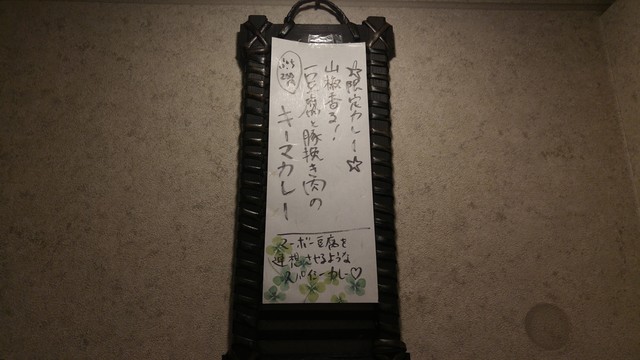 ☆限定カレー☆
山椒香る!
豆腐と豚挽き肉の
キーマカレー
マーボー豆腐を
連想させるような
スパイシーカレー♡